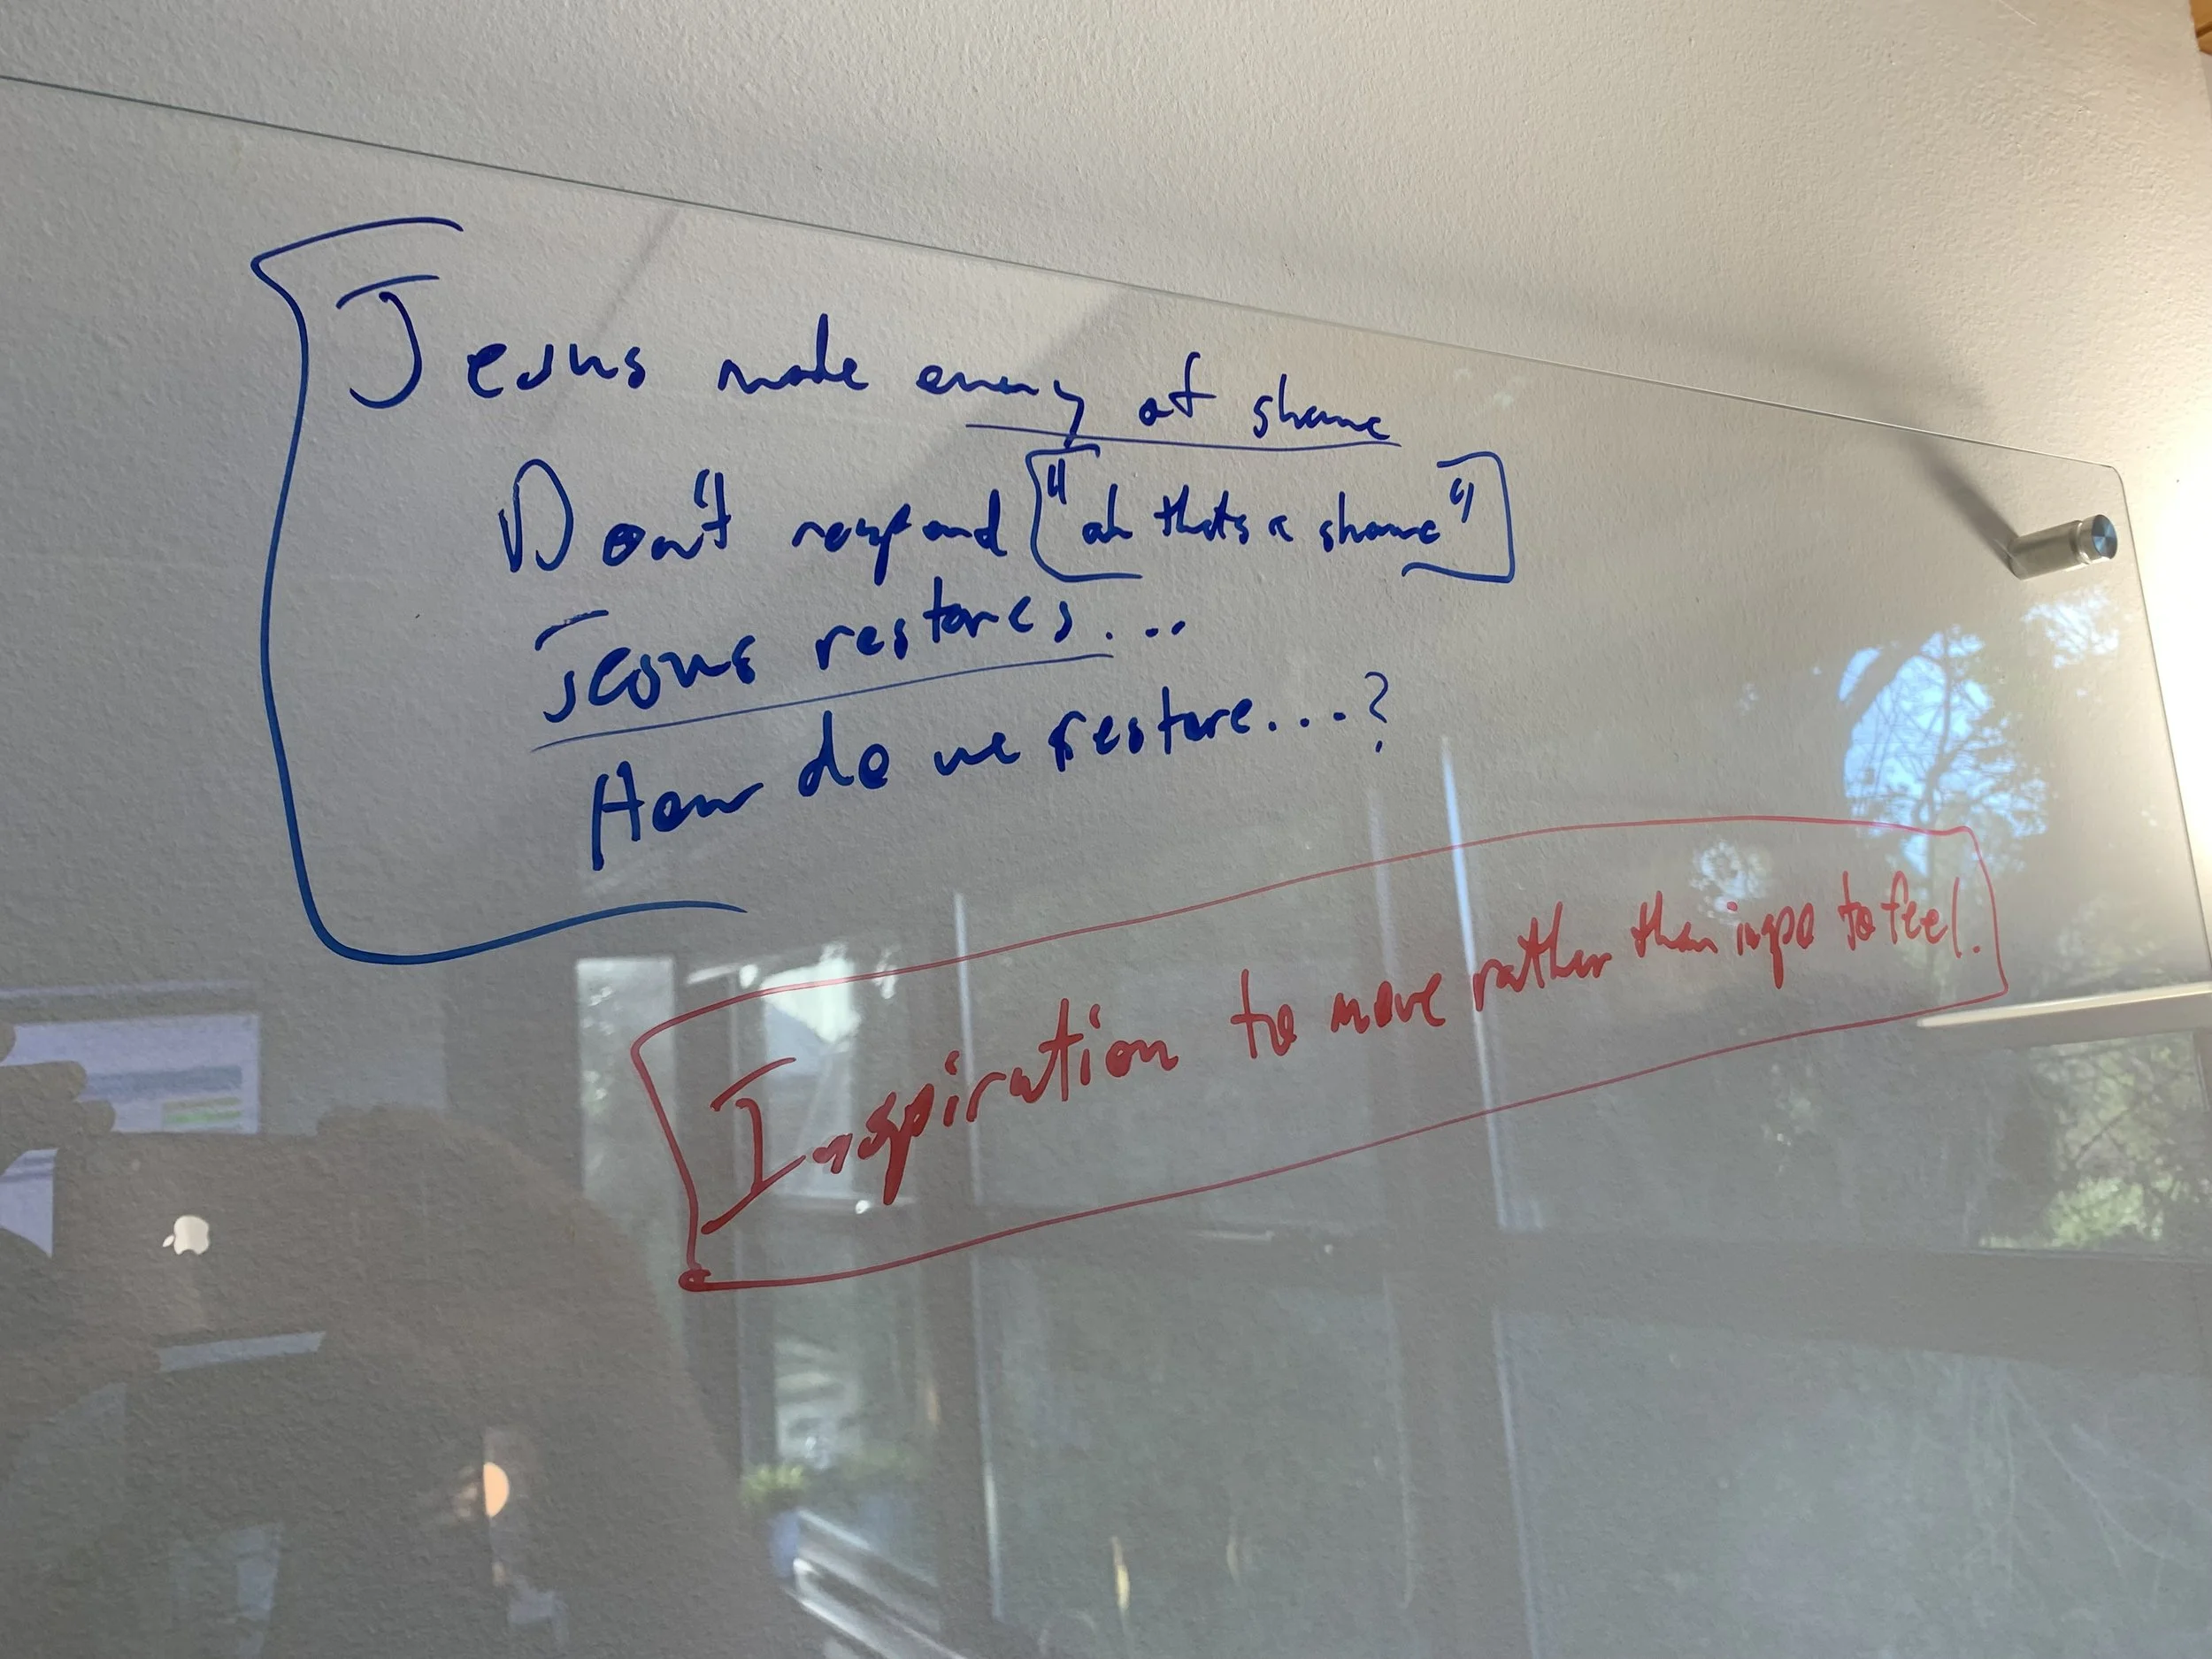 Jesus made enemy of shame
Don't respond ["ah thats a shame"]
Jesus restores...
How do we restore...?
Inspiration to move rather than inspo to feel.